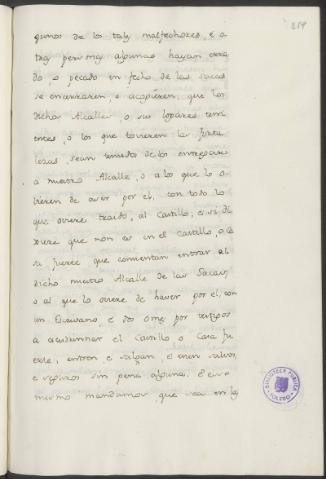 219
gunos de los tales malfechores, e a
tales personas algunas hayan erra
do o pecado en fecho de las sacas
se encerraren, o acogieren, que los
dichos Alcalles, o sus logares teni
entes, o los que tovieren las forta
lezas, sean tenudos de los entregar
a nuestro Alcalle, o a lo que lo o
vieren de aver por el, con todo lo
que oviere traido, al Castillo; e si di
xiere que non es en el castillo, o ca
sa fuerte que consientan entrar al
dicho nuestro Alcalle de las Sacas,
o al que lo oviere de haver por el, con
un Escrivano, e dos omes por testigos
a escudrinnar el Castillo o Casa fu
erte, entren e salgan, e sean salvos,
e seguros sin pena alguna. E eso
mismo mandamos que sea en los
BIBLIOTECA PUBLICA
TOLEDO